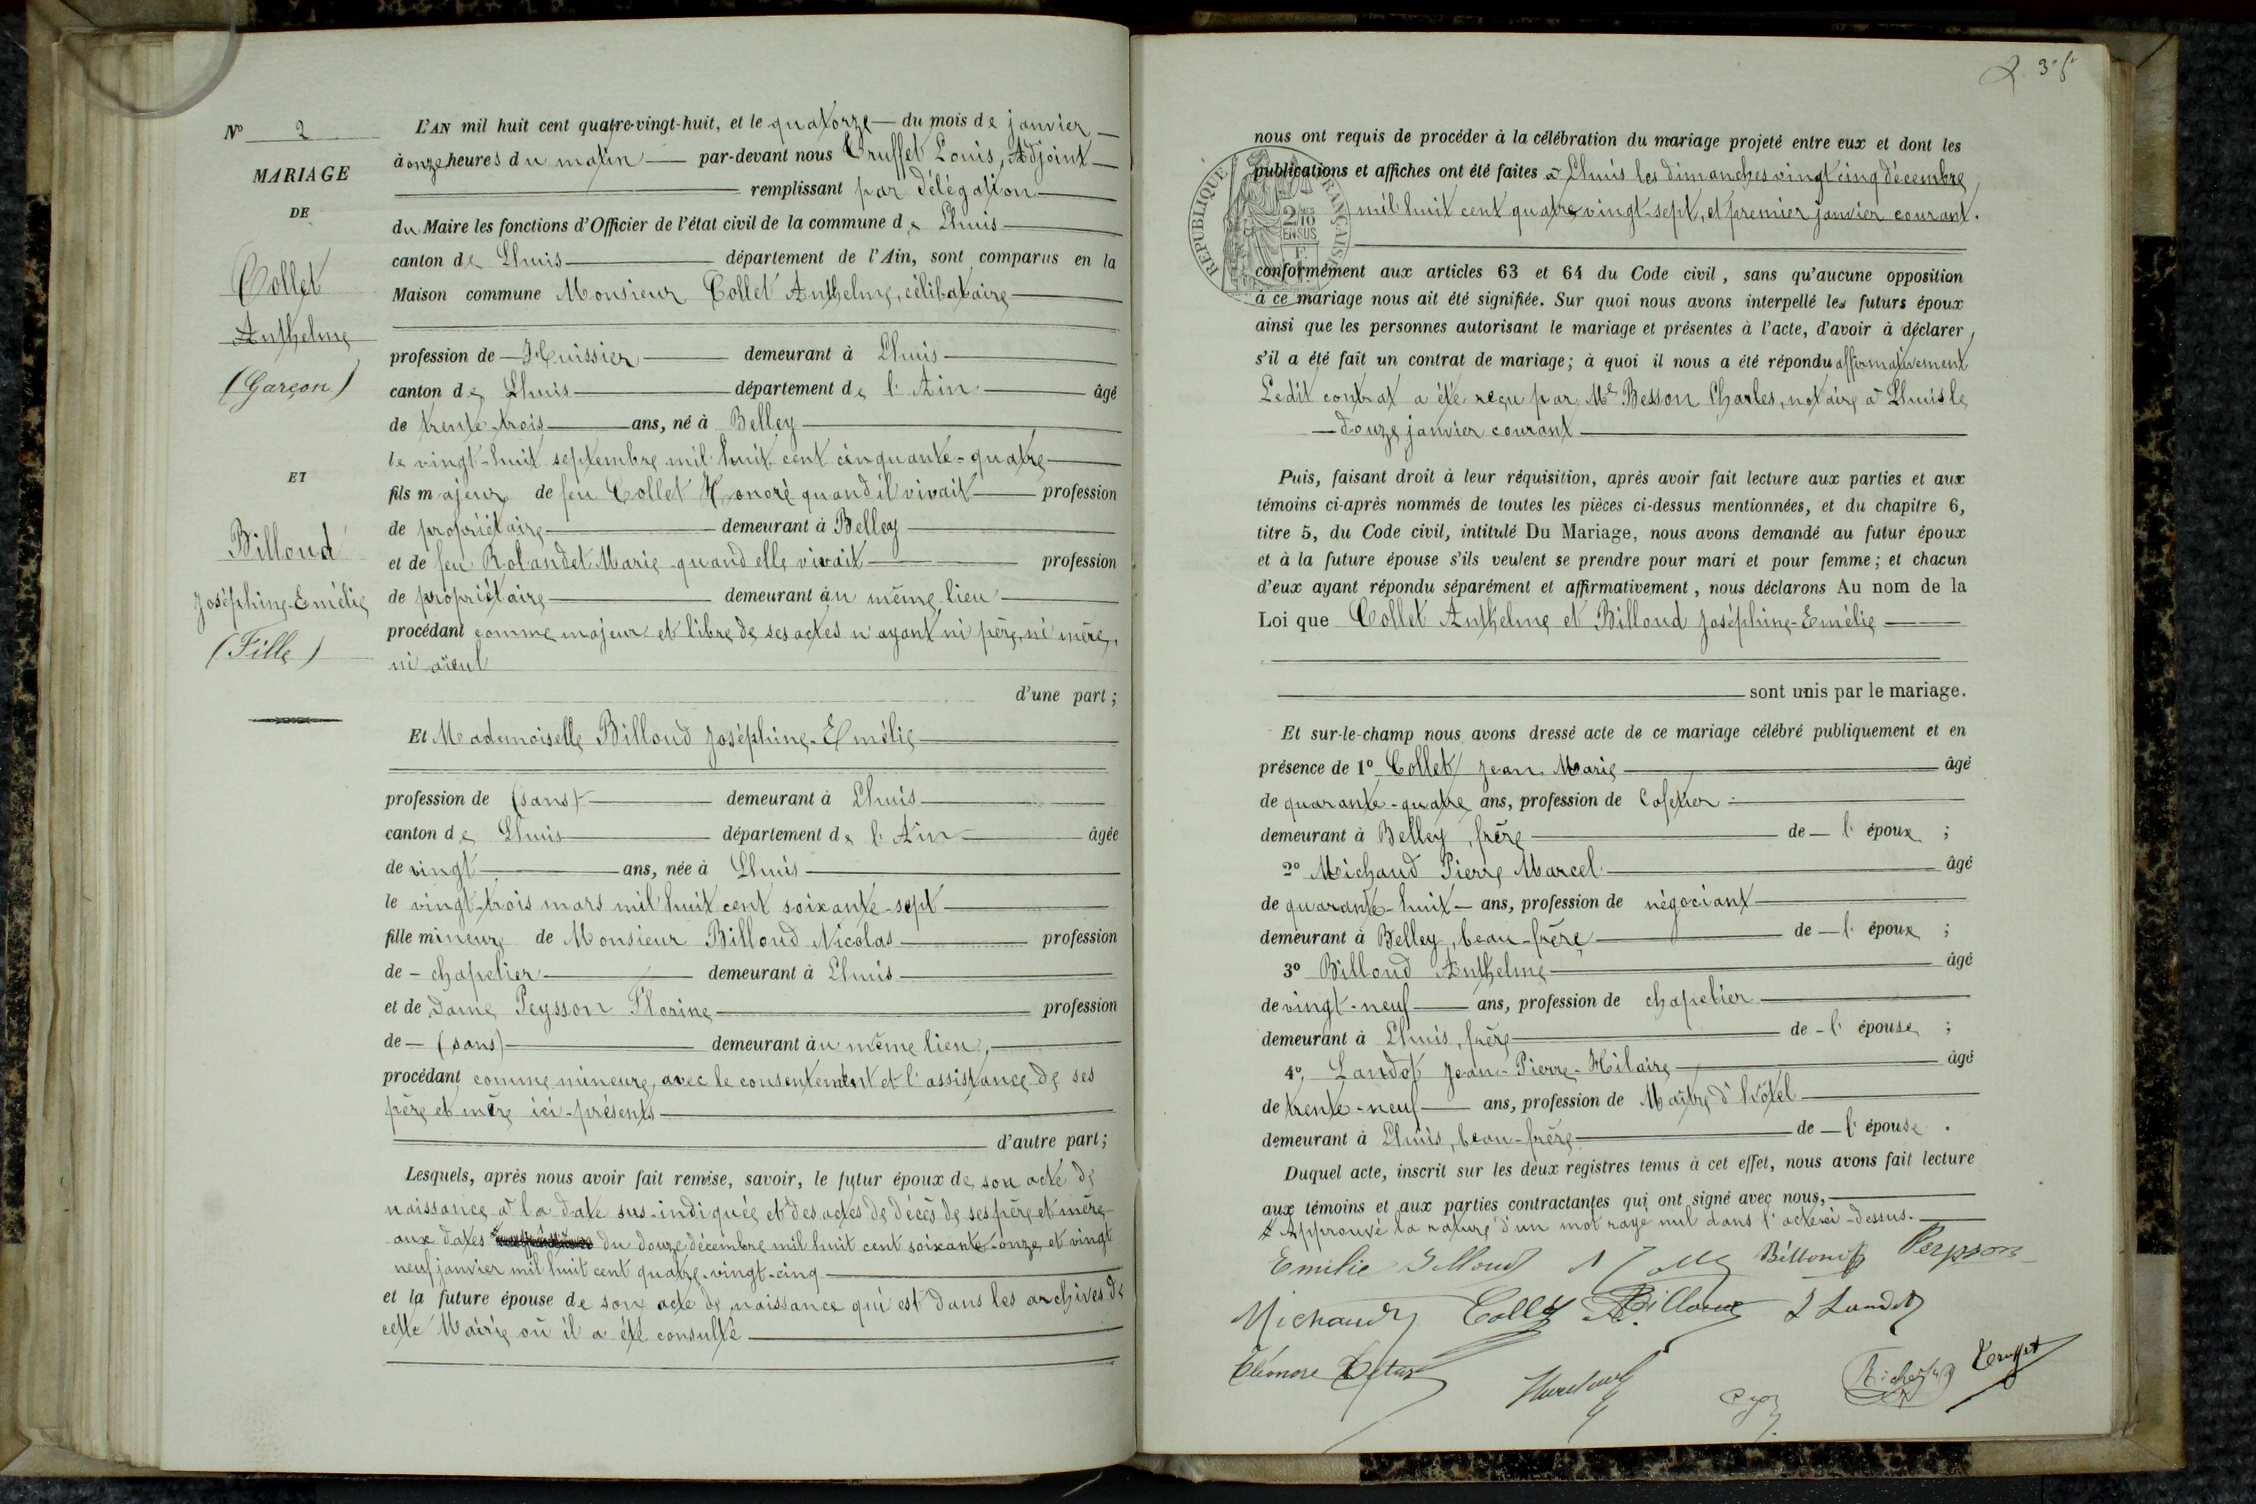 N° 2
MARIAGE
DE
Collet
Anthelme
(Garçon)
ET
Billoud
Joséphine-Emélie
(Fille)
L'AN mil huit cent quatre-vingt-huit, et le quatorze du mois de janvier
à onze heures du matin par-devant nous Truffet Louis, Adjoint
remplissant par délégation
du Maire les fonctions d'Officier de l'état civil de la commune de Lhuis
canton de Lhuis département de l'Ain, sont comparus en la
Maison commune Monsieur Collet Anthelme, célibataire
profession de Huissier demeurant à Lhuis
canton de Lhuis département de l'Ain âgé
de trente-trois ans, né à Belley
le vingt-huit septembre mil huit cent cinquante-quatre
fils majeur de feu Collet Honoré quand il vivait profession
de propriétaire demeurant à Belley
et de feu Rolandet Marie quand elle vivait profession
de propriétaire demeurant au même lieu
procédant comme majeur et libre de ses actes n'ayant ni père, ni mère,
ni aïeul
d'une part;
Et Mademoiselle Billoud Joséphine-Emélie
profession de (sans) demeurant à Lhuis
canton de Lhuis département de l'Ain âgée
de vingt ans, née à Lhuis
le vingt-trois mars mil huit cent soixante-sept
fille mineure de Monsieur Billoud Nicolas profession
de chapelier demeurant à Lhuis
et de Dame Peysson Florine profession
de (sans) demeurant au même lieu,
procédant comme mineure, avec le consentement et l'assistance de ses
père et mère ici-présents
d'autre part;
Lesquels, après nous avoir fait remise, savoir, le futur époux de son acte de
naissance à la date sus-indiquée et des actes de décès de ses père et mère
aux dates du douze décembre mil huit cent soixante-onze et vingt
neuf janvier mil huit cent quatre-vingt-cinq
et la future épouse de son acte de naissance qui est dans les archives de
cette Mairie où il a été consulté
nous ont requis de procéder à la célébration du mariage projeté entre eux et dont les
publications et affiches ont été faites à Lhuis les dimanches vingt cinq décembre
mil huit cent quatre vingt-sept, et premier janvier courant.
RÉPUBLIQUE FRANÇAISE
2/10 EN SUS
conformément aux articles 63 et 64 du Code civil, sans qu'aucune opposition
à ce mariage nous ait été signifiée. Sur quoi nous avons interpellé les futurs époux
ainsi que les personnes autorisant le mariage et présentes à l'acte, d'avoir à déclarer,
s'il a été fait un contrat de mariage; à quoi il nous a été répondu affirmativement
Ledit contrat a été reçu par Me Besson Charles, notaire à Lhuis le
douze janvier courant
Puis, faisant droit à leur réquisition, après avoir fait lecture aux parties et aux
témoins ci-après nommés de toutes les pièces ci-dessus mentionnées, et du chapitre 6,
titre 5, du Code civil, intitulé Du Mariage, nous avons demandé au futur époux
et à la future épouse s'ils veulent se prendre pour mari et pour femme; et chacun
d'eux ayant répondu séparément et affirmativement, nous déclarons Au nom de la
Loi que Collet Anthelme et Billoud Joséphine-Emélie
sont unis par le mariage.
Et sur-le-champ nous avons dressé acte de ce mariage célébré publiquement et en
présence de 1° Collet Jean Marie âgé
de quarante-quatre ans, profession de Cafetier
demeurant à Belley, frère de l'époux ;
2° Michaud Pierre Marcel âgé
de quarante-huit ans, profession de négociant
demeurant à Belley, beau-frère de l'époux ;
3° Billoud Anthelme âgé
de vingt-neuf ans, profession de chapelier
demeurant à Lhuis, frère de l'épouse ;
4° Landot Jean-Pierre-Hilaire âgé
de trente-neuf ans, profession de Maître d'hôtel
demeurant à Lhuis, beau-frère de l'épouse.
Duquel acte, inscrit sur les deux registres tenus à cet effet, nous avons fait lecture
aux témoins et aux parties contractantes qui ont signé avec nous,
Approuvé la rature d'un mot rayé nul dans l'acte ci-dessus.
Emélie Billoud Billoud Peysson
Michaud Collet Billoud Landot
Eléonore
Truffet